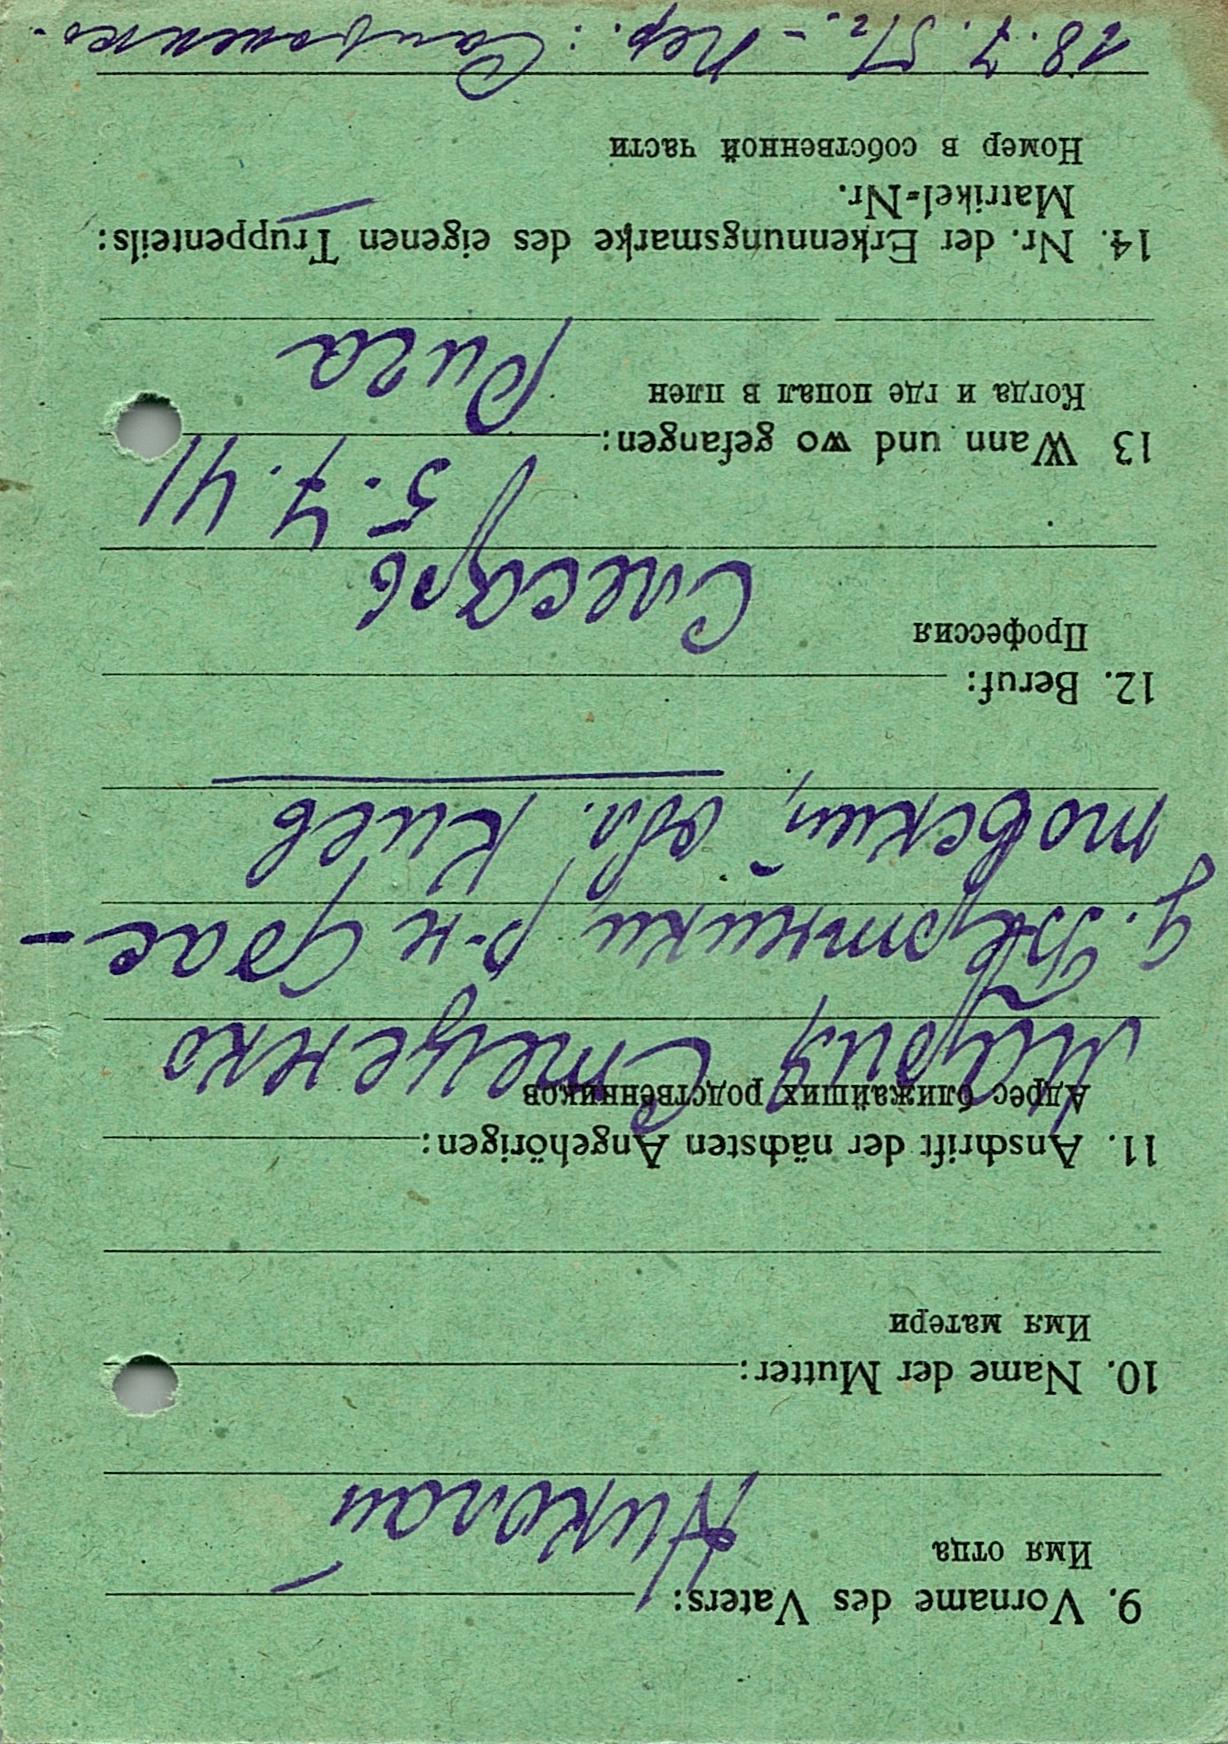 9. Vorname des Vaters:
Имя отца
Николай
10. Name der Mutter:
Имя матери
11. Anschrift der nächsten Angehörigen:
Адрес ближайших родственников
Мария Стеценко
р-н Фас-
товский, обл. Киев
12. Beruf:
Профессия
Слесарь
13 Wann und wo gefangen:
5.7.41
Когда и где попал в плен
Рига
14. Nr. der Erkennungsmarke des eigenen Truppenteils:
Matrikel-Nr.
Номер в собственной части
Пер.: